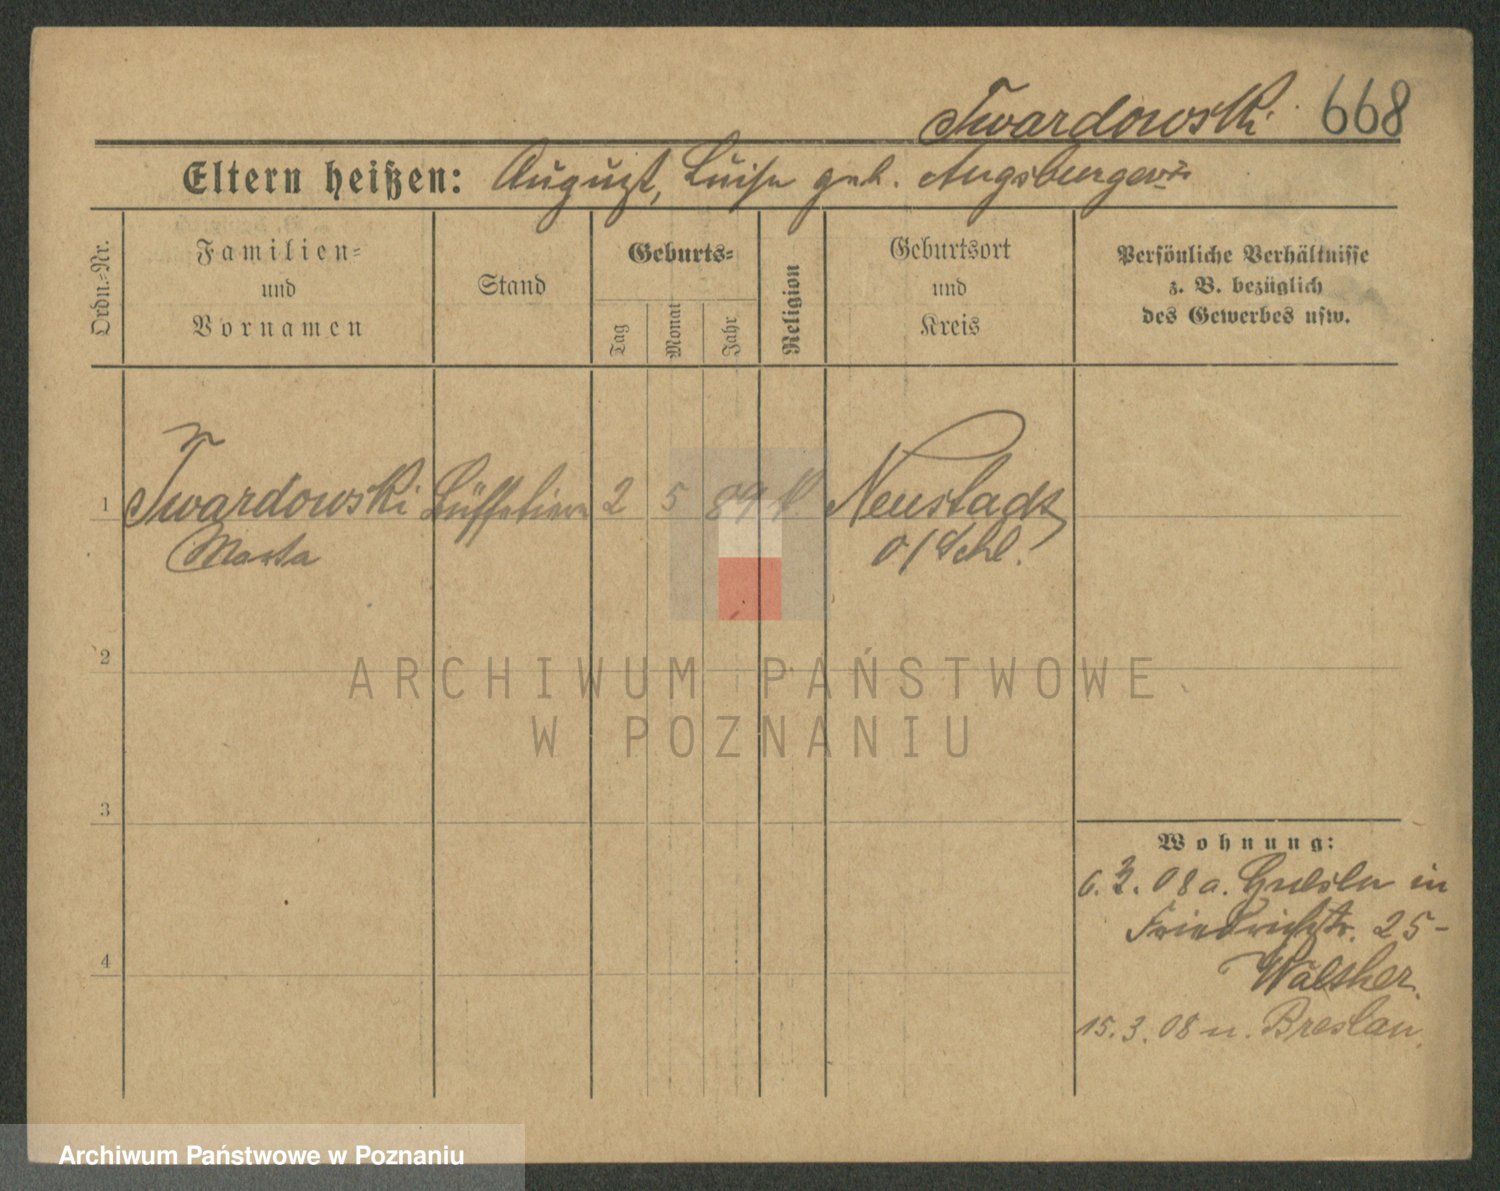 Twardowski 668
Eltern heißen: August, Luise geb. Augsburger
Ordn.-Nr.
Familien-
und
Vornamen
Stand
Geburts-
Tag
Monat
Jahr
Religion
Geburtsort
und
Kreis
Persönliche Verhältnisse
z. B. bezüglich
des Gewerbes usw.
1 Twardowski Büffetiere 2 5 89 k. Neustadt
Marta o/Schl.
2
3
4
Wohnung:
6. 3. 08 a. in
Friedrichstr. 25-
Walther.
15. 3. 08 n. Breslau.
ARCHIWUM PAŃSTWOWE
W POZNANIU
Archiwum Państwowe w Poznaniu